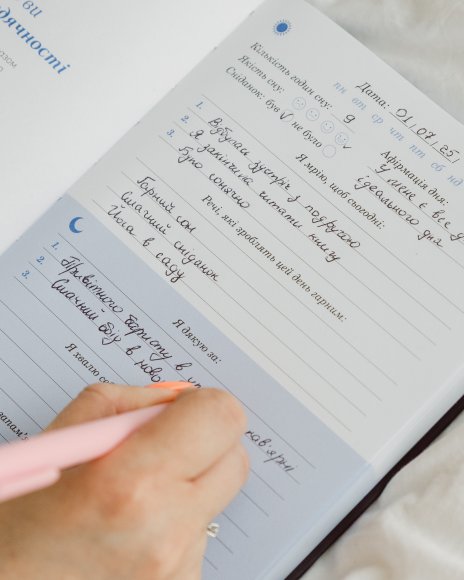 ви
дячності
разом
Дата: 01.07.25
пн вт ср чт пт сб нд
Кількість годин сну: 9
Якість сну:
Сніданок: був V не було
Афірмація дня:
У мене є все д
ідеального дня
Я мрію, щоб сьогодні:
1. Відбулась зустріч з подругою
2. Я закінчила читати книгу
3. Було сонячно
Речі, які зроблять цей день гарним:
Гарний сон
Смачний сніданок
Йога в саду
Я дякую за:
1. Привітного баристу в
кав'ярні
2. Смачний обід в ново
3.
Я хвалю се
запам'я